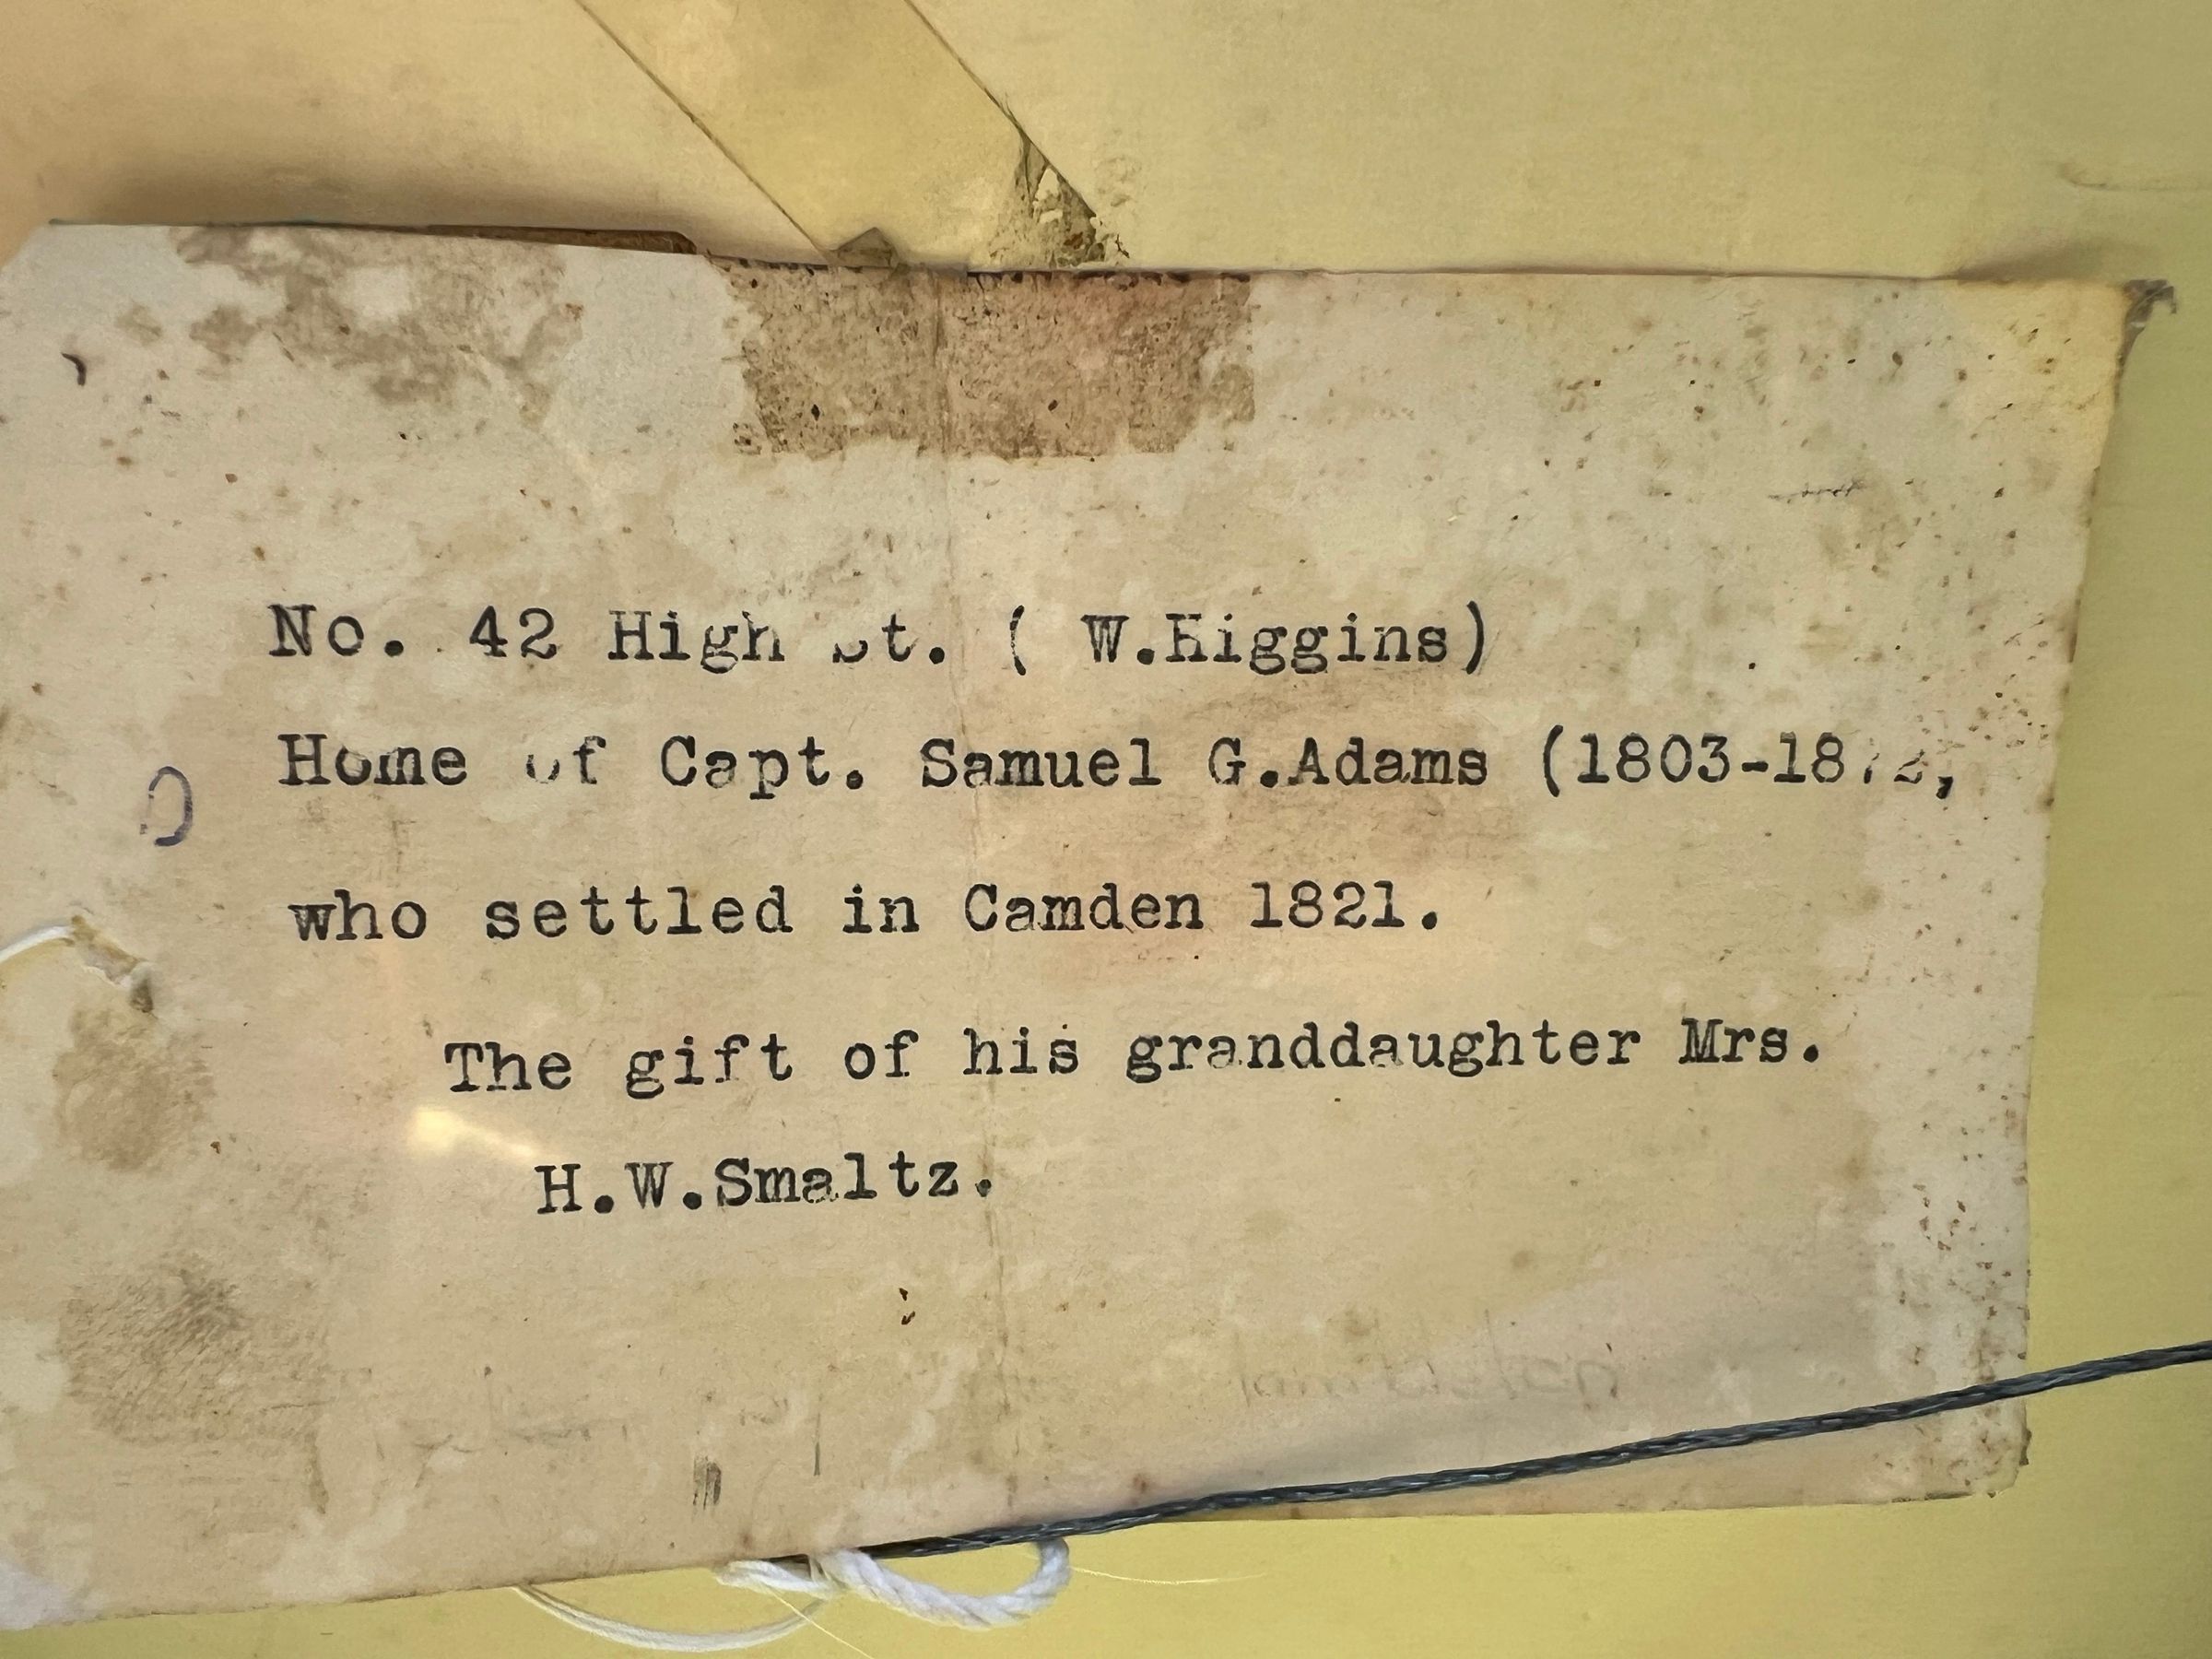 No. 42 High St. ( W.Higgins)
Home of Capt. Samuel G.Adams (1803-
who settled in Camden 1821.
The gift of his granddaughter Mrs.
H.W.Smaltz.